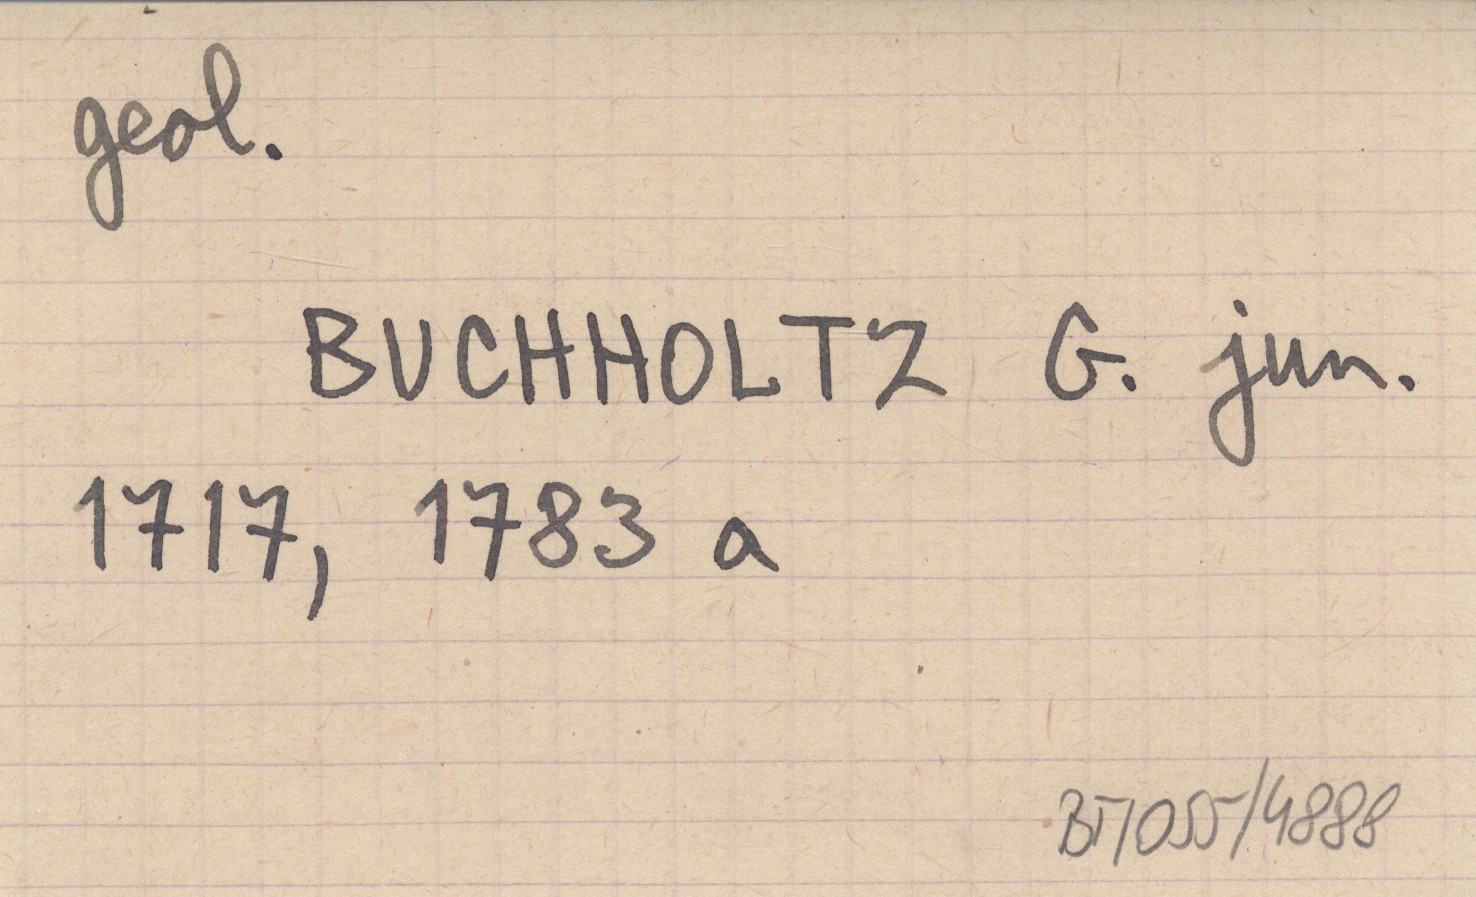 geol.
BUCHHOLTZ G. jun.
1717, 1783 a
BT/055/4888